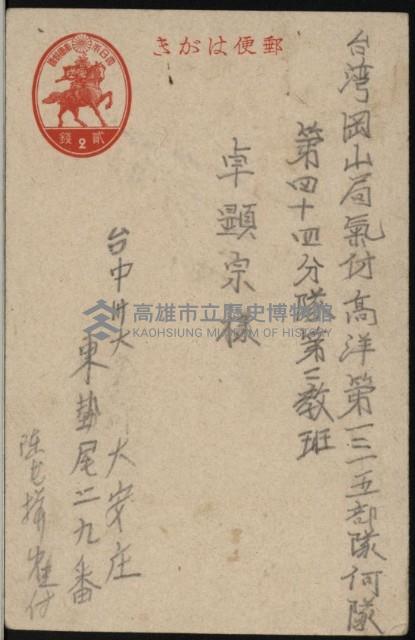 郵便はがき
大日本帝國郵便
貳 2 錢
台湾岡山局氣付高洋第一三一五部隊何隊
第四十四分隊第三教班
卓顯宗様
台中州大 大安庄
東勢尾二九番
高雄市立歷史博物館
KAOHSIUNG MUSEUM OF HISTORY